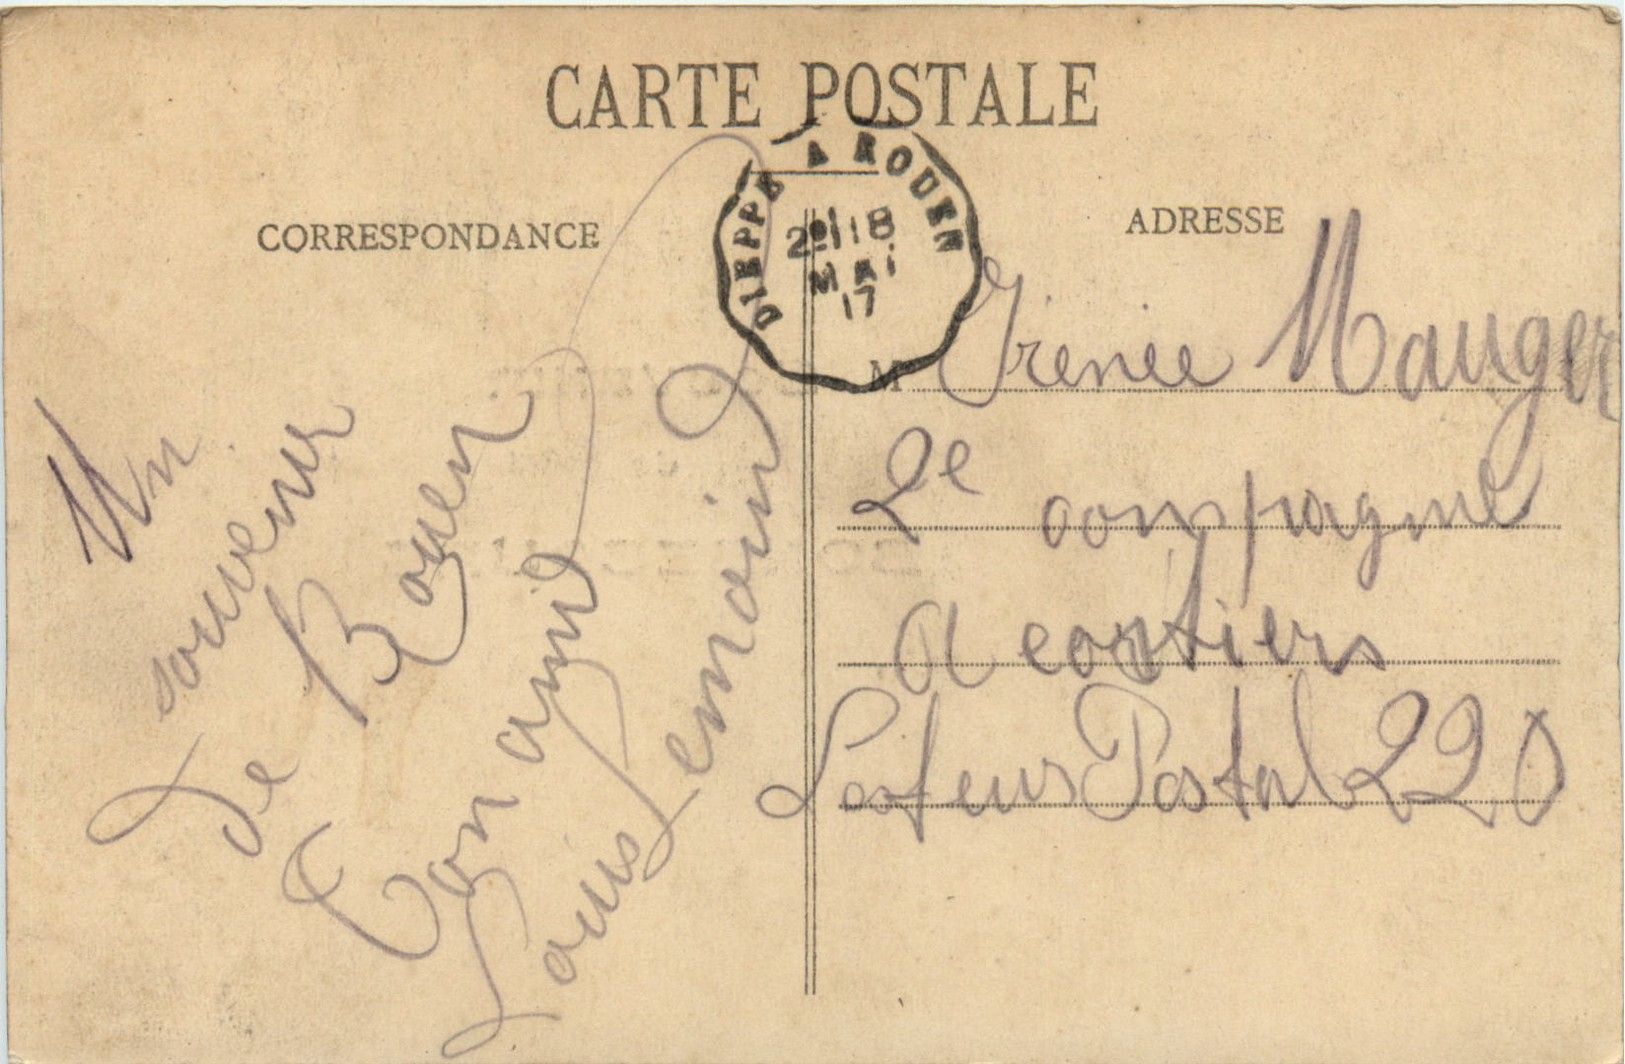 CARTE POSTALE
CORRESPONDANCE
ADRESSE
DIEPPE A ROUEN
2º 18
MAI
17
Un
souvenir
de Rouen
Ton ami
Louis Lemoine
M Irénee Mauger
2e compagnie
A
Secteur Postal 220